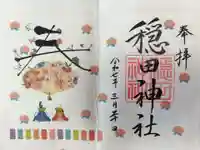 奉拝
穏田神社
令和七年三月吉日